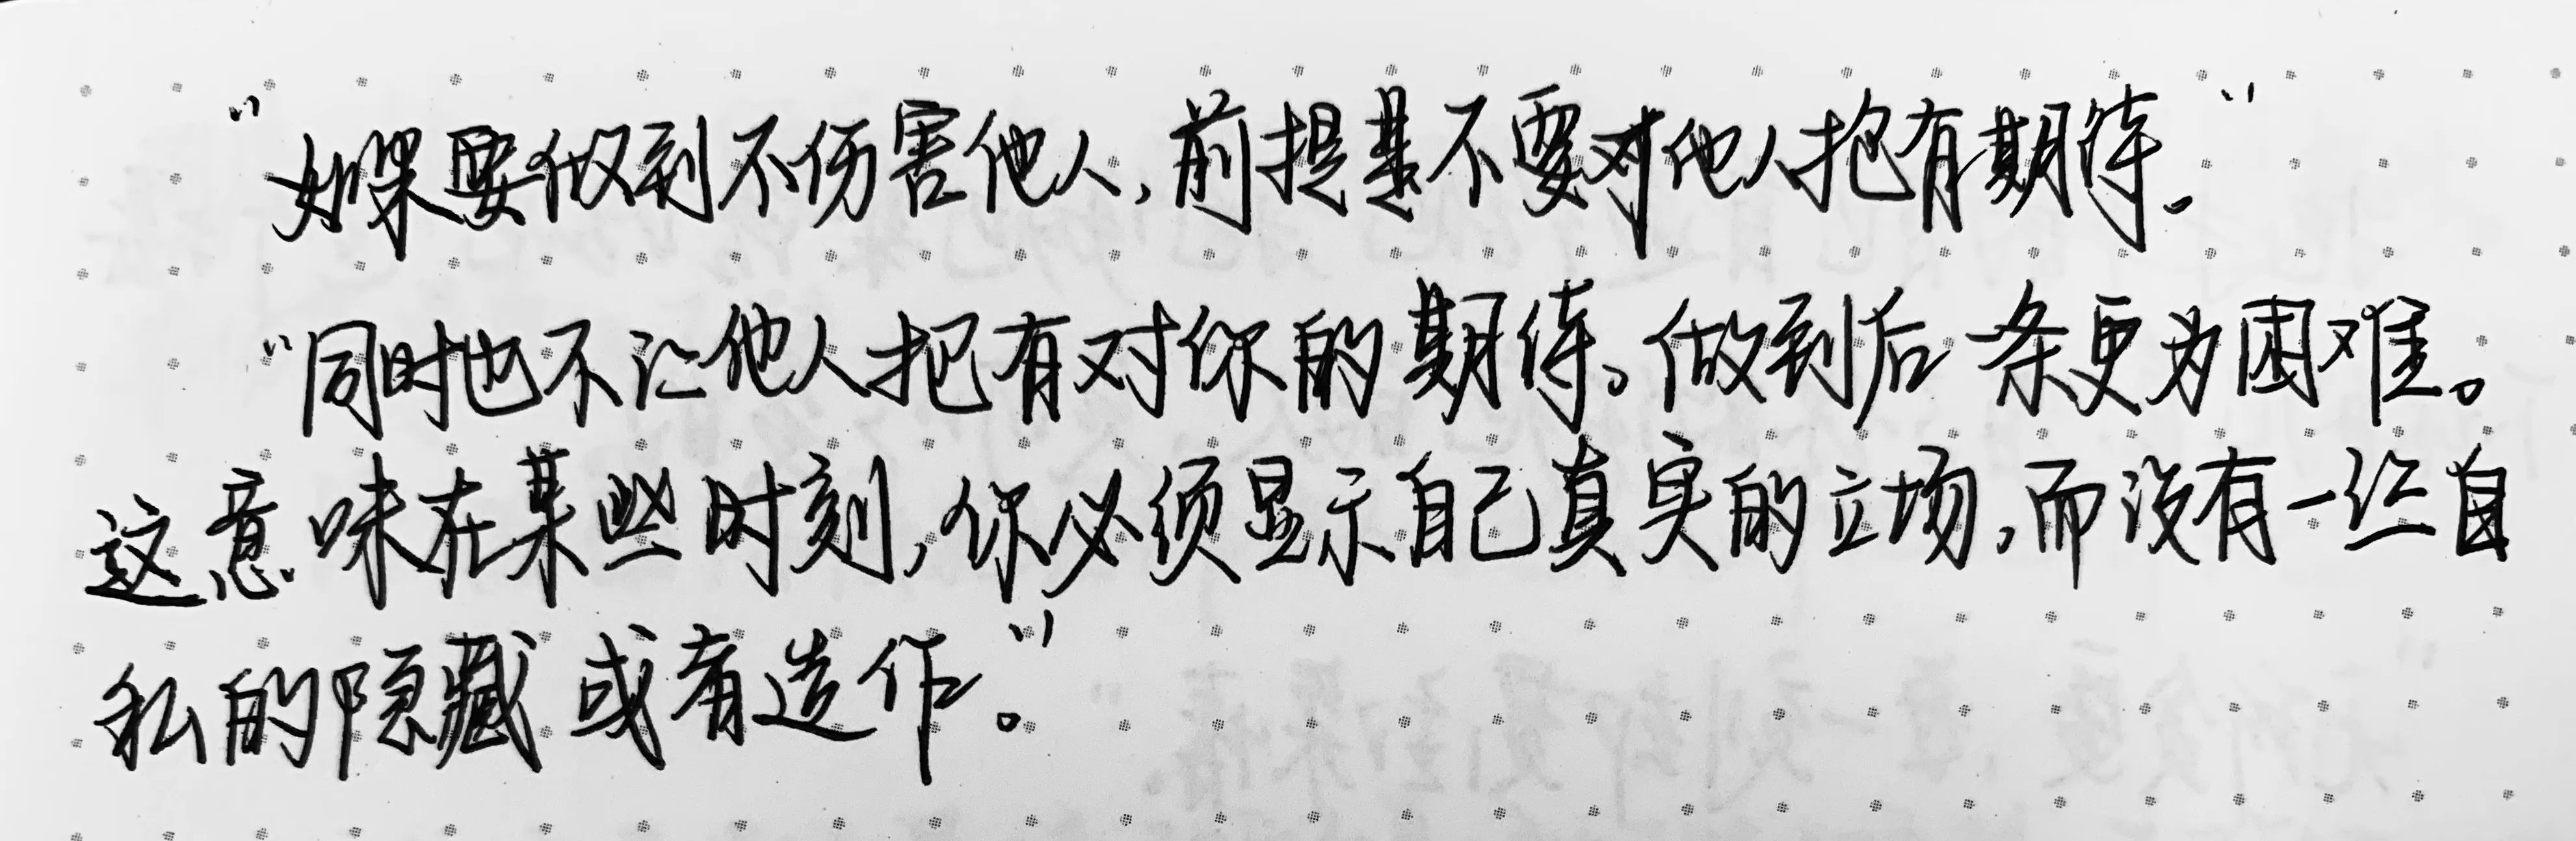 “如果要做到不伤害他人，前提是不要对他人抱有期待。”
“同时也不让他人抱有对你的期待。做到后一条更为困难。
这意味在某些时刻，你必须显示自己真实的立场，而没有一丝自
私的隐藏或者造作。”